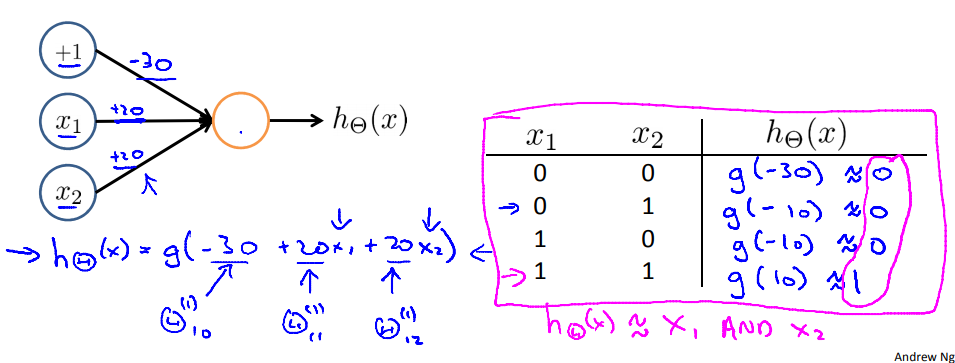 +1
-30
x₁
+20
x₂
+20
h_Θ(x)
→ h_Θ(x) = g(-30 + 20x₁ + 20x₂) ←
Θ₁₀⁽¹⁾ Θ₁₁⁽¹⁾ Θ₁₂⁽¹⁾
x₁ x₂ h_Θ(x)
0 0 g(-30) ≈ 0
→ 0 1 g(-10) ≈ 0
1 0 g(-10) ≈ 0
→ 1 1 g(10) ≈ 1
h_Θ(x) ≈ x₁ AND x₂
Andrew Ng